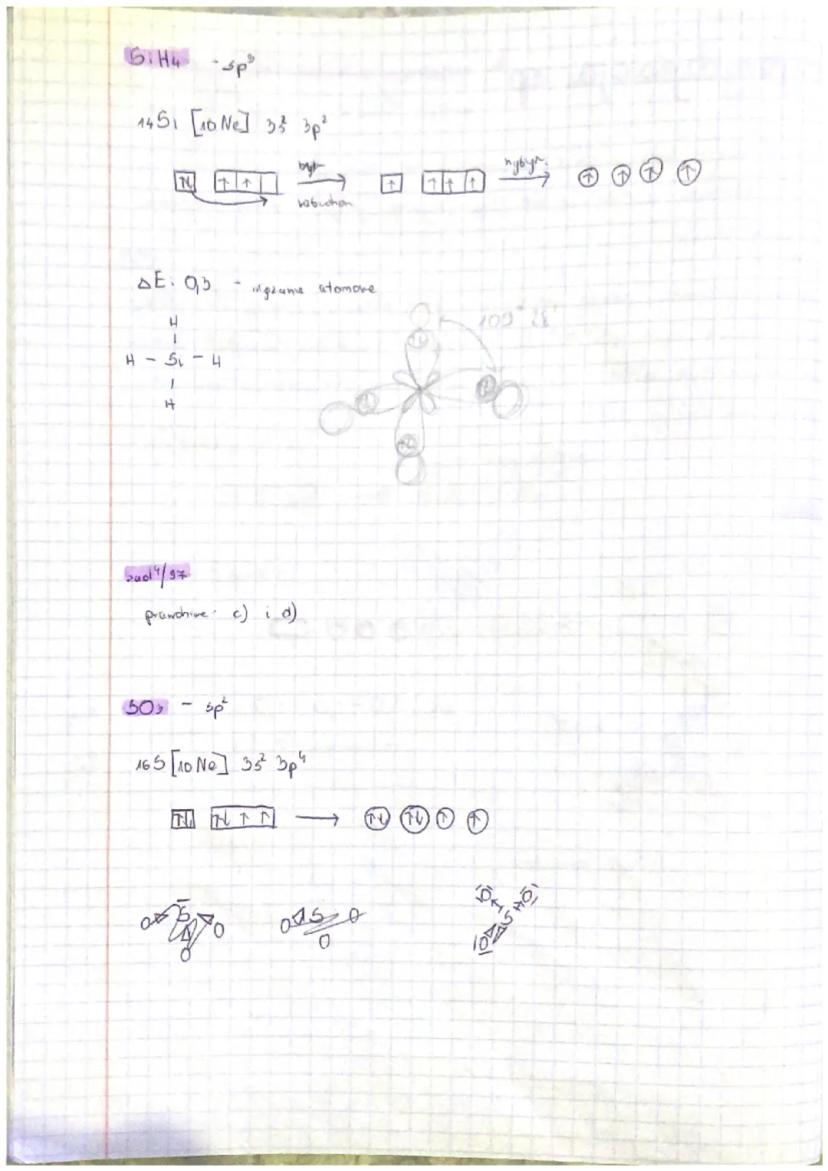 SiH4 - sp³
14Si [10Ne] 3s² 3p²
↑↓ ↑ ↑ → ↑ ↑ ↑ ↑ hybr. → ↑ ↑ ↑ ↑
ΔE: 0,3 - atomowe
109° 28'
H
H - Si - H
H
zad 4/97
prawdziwe: c) i d)
SO3 - sp²
16S [10Ne] 3s² 3p⁴
↑↓ ↑↓ ↑ ↑ → ↑↓ ↑↓ ↑ ↑
O S O
O
O S O
O
O O
S
O